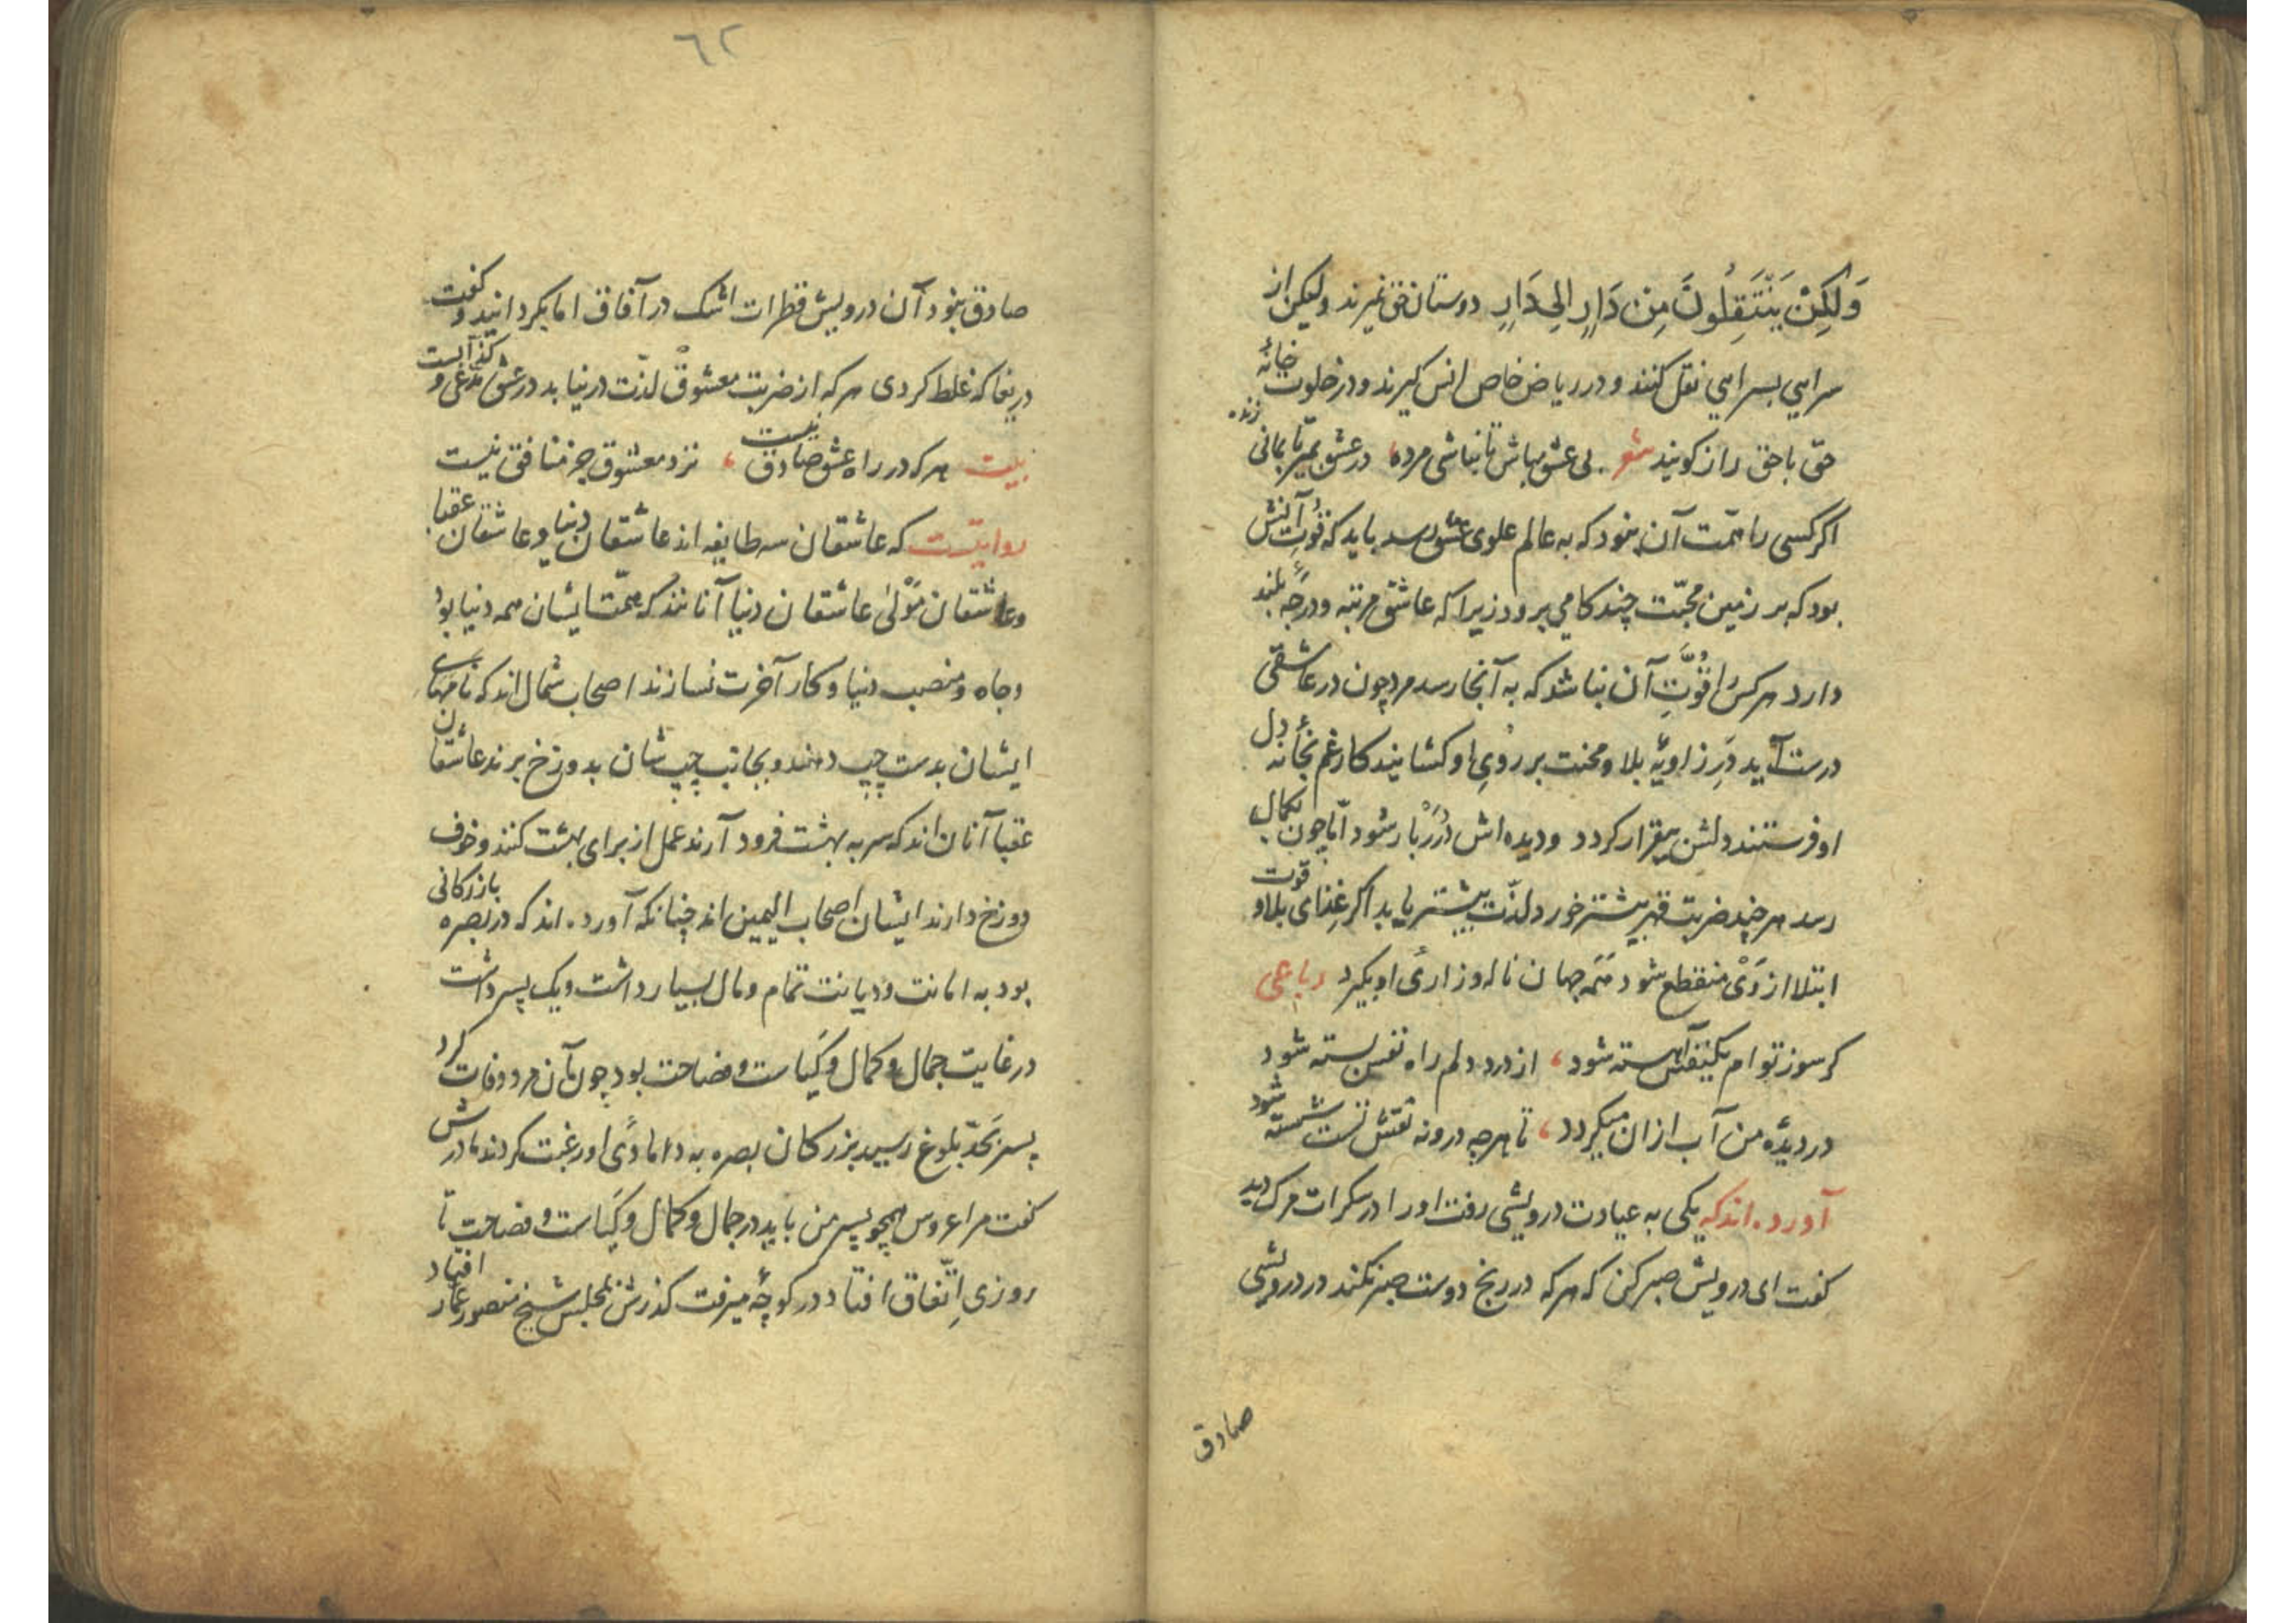 وَلٰكِنْ يَنْتَقِلُونَ مِنْ دَارٍ اِلىٰ دَارٍ دوستان حق نمیرند ولیکن از
سرایی بسرایی نقل کنند و در ریاض خاص انس کیرند و در خلوت خانهٔ
حق با حق راز کویند شعر بی عشق مباش تا نباشی مرده، در عشق بمیر تا بمانی زنده
اکر کسی را همّت آن بنود که به عالم علوی عشق رسد باید که قوّت آتش
بود که بر زمین محبّت چند کامی برود زیرا که عاشقی مرتبه و درجهٔ بلند
دارد هر کس را قوّتِ آن نباشد که به آنجا رسد مرد چون در عاشقی
درست آید در زاویهٔ بلا و محنت بر رویِ او کشایند کار غم بخانهٔ دل
او فرستند دلش بیقرار کردد و دیده اش دُرَرْ بار شود امّا چون بکمال
رسد هر چند ضربت قهر بیشتر خورد لذّت بیشتر یابد اکر غذای بلا و قوت
ابتلا از وَیْ منقطع شود همه جهان ناله و زاریٔ او بکیرد رباعی
کر سوز تو ام یکنفس آهسته شود، از درد دلم راه نفس بسته شود
در دیدهٔ من آب ازان میکردد، تا هر چه درو نه نقش تست شسته شود
آورده اند که یکی به عیادت درویشی رفت او را در سکرات مرک دید
کفت ای درویش صبر کن که هر که در رنج دوست صبر نکند در درویشی
صادق
٦٢
صادق بنود آن درویش قطرات اشک در آفاق اما بکردانید و کفت
دریغا که غلط کردی هر که از ضربت معشوقْ لذّت در نیابد در عشق مدّعی و کذّابست
بیت هر که در راه عشق صادق نیست، نزد معشوق جز منافق نیست
روایتست که عاشقان سه طایفه اند عاشقان دنیا و عاشقان عقبا
و عاشقان مَوْلیٰ عاشقان دنیا آنانند که همّت ایشان همه دنیا بود
و جاه و منصب دنیا و کار آخرت نسازند اصحاب شمال اند که نامهای
ایشان بدست چپ دهند و بجانب چپ شان بدوزخ برند عاشقان
عقبا آنان اند که سر به بهشت فرود آرند عمل از برای بهشت کنند و خوف
دوزخ دارند ایشان اصحاب الیمین اند چنانکه آورده اند که در بصره بازرکانی
بود به امانت و دیانت تمام و مال بسیار داشت و یک پسر داشت
در غایت جمال و کمال و کیاست و فصاحت بود چون آن مرد وفات کرد
پسر بحدّ بلوغ رسید بزرکان بصره به دامادیٔ او رغبت کردند مادرش
کفت مرا عروس همچو پسر من باید در جمال و کمال و کیاست و فصاحت تا
روزی اِتّفاق افتاد در کوچهٔ میرفت کذرش بمجلس شیخ منصور عمّار افتاد